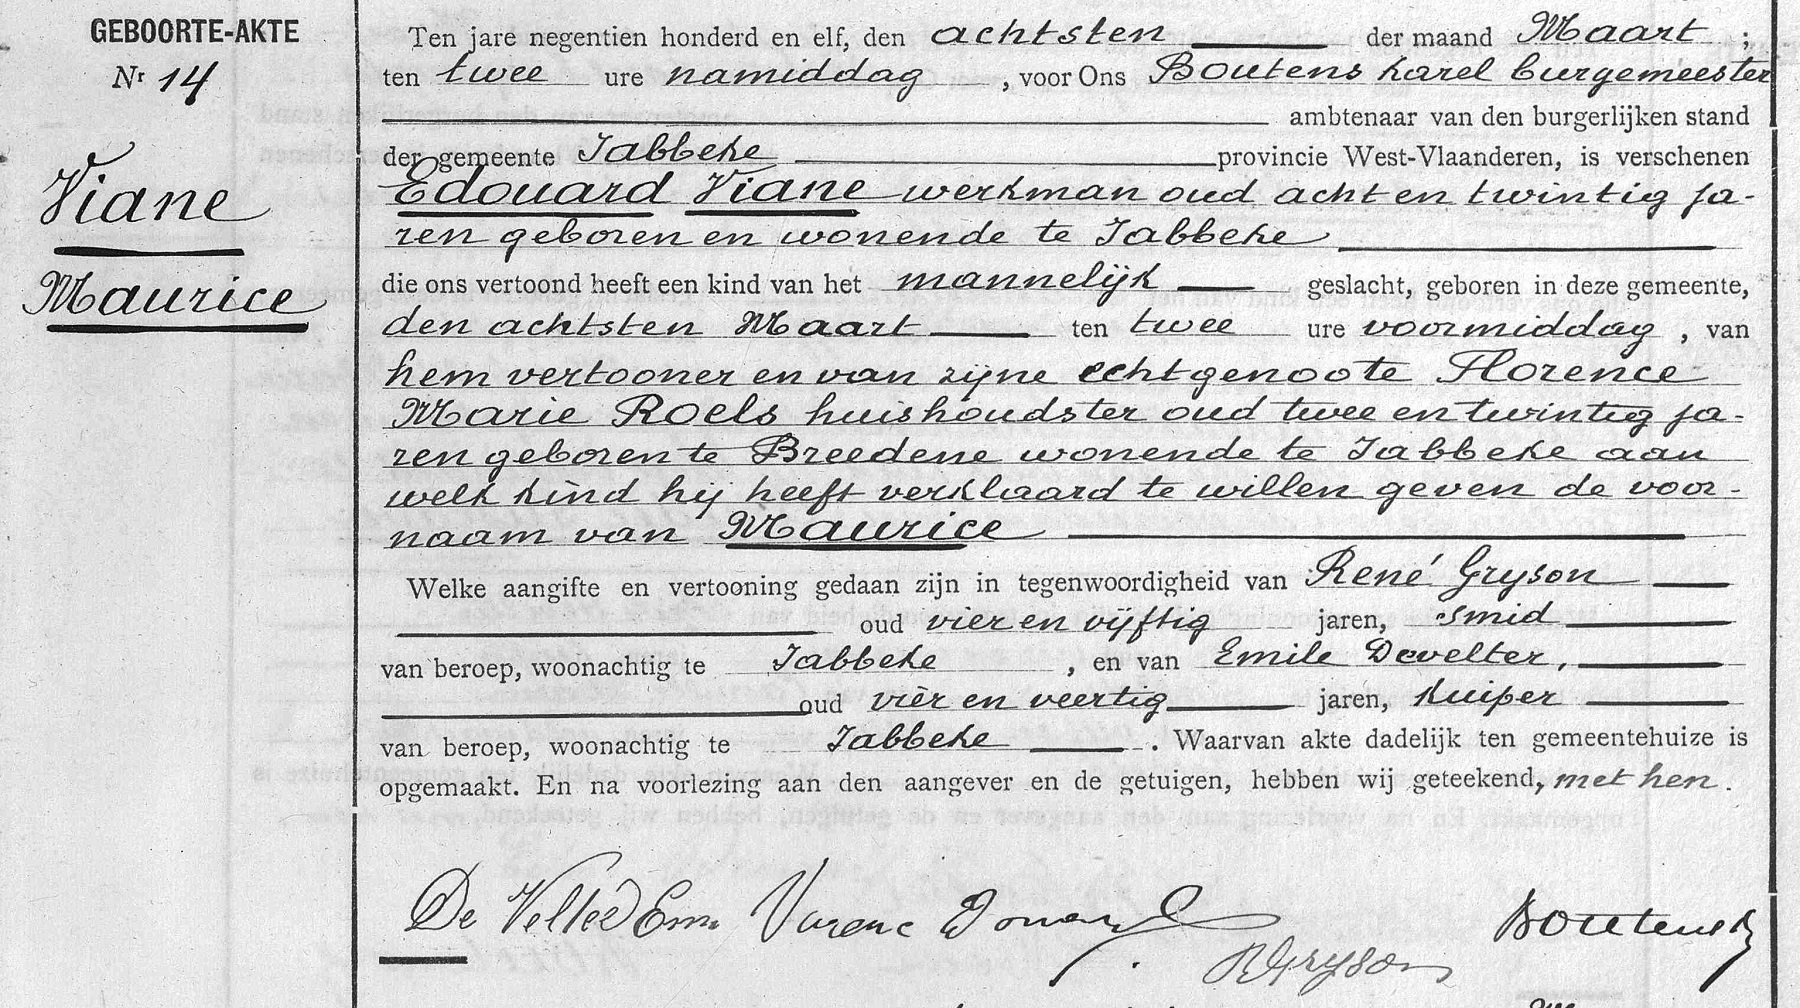 GEBOORTE-AKTE
Nr 14
Viane
Maurice
Ten jare negentien honderd en elf, den achtsten der maand Maart ;
ten twee ure namiddag , voor Ons Boutens Karel burgemeester
ambtenaar van den burgerlijken stand
der gemeente Jabbeke provincie West-Vlaanderen, is verschenen
Edouard Viane werkman oud acht en twintig ja-
ren geboren en wonende te Jabbeke
die ons vertoond heeft een kind van het mannelijk geslacht, geboren in deze gemeente,
den achtsten Maart ten twee ure voormiddag , van
hem vertooner en van zijne echtgenoote Florence
Marie Roels huishoudster oud twee en twintig ja-
ren geboren te Breedene wonende te Jabbeke aan
welk kind hij heeft verklaard te willen geven de voor-
naam van Maurice
Welke aangifte en vertooning gedaan zijn in tegenwoordigheid van René Gryson
oud vier en vijftig jaren, smid
van beroep, woonachtig te Jabbeke , en van Emile Develter,
oud vier en veertig jaren, kuiper
van beroep, woonachtig te Jabbeke . Waarvan akte dadelijk ten gemeentehuize is
opgemaakt. En na voorlezing aan den aangever en de getuigen, hebben wij geteekend, met hen.
De Velter Em. Boutens K
R Gryson